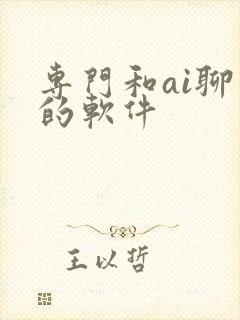 専門和ai聊
的軟件
王以哲